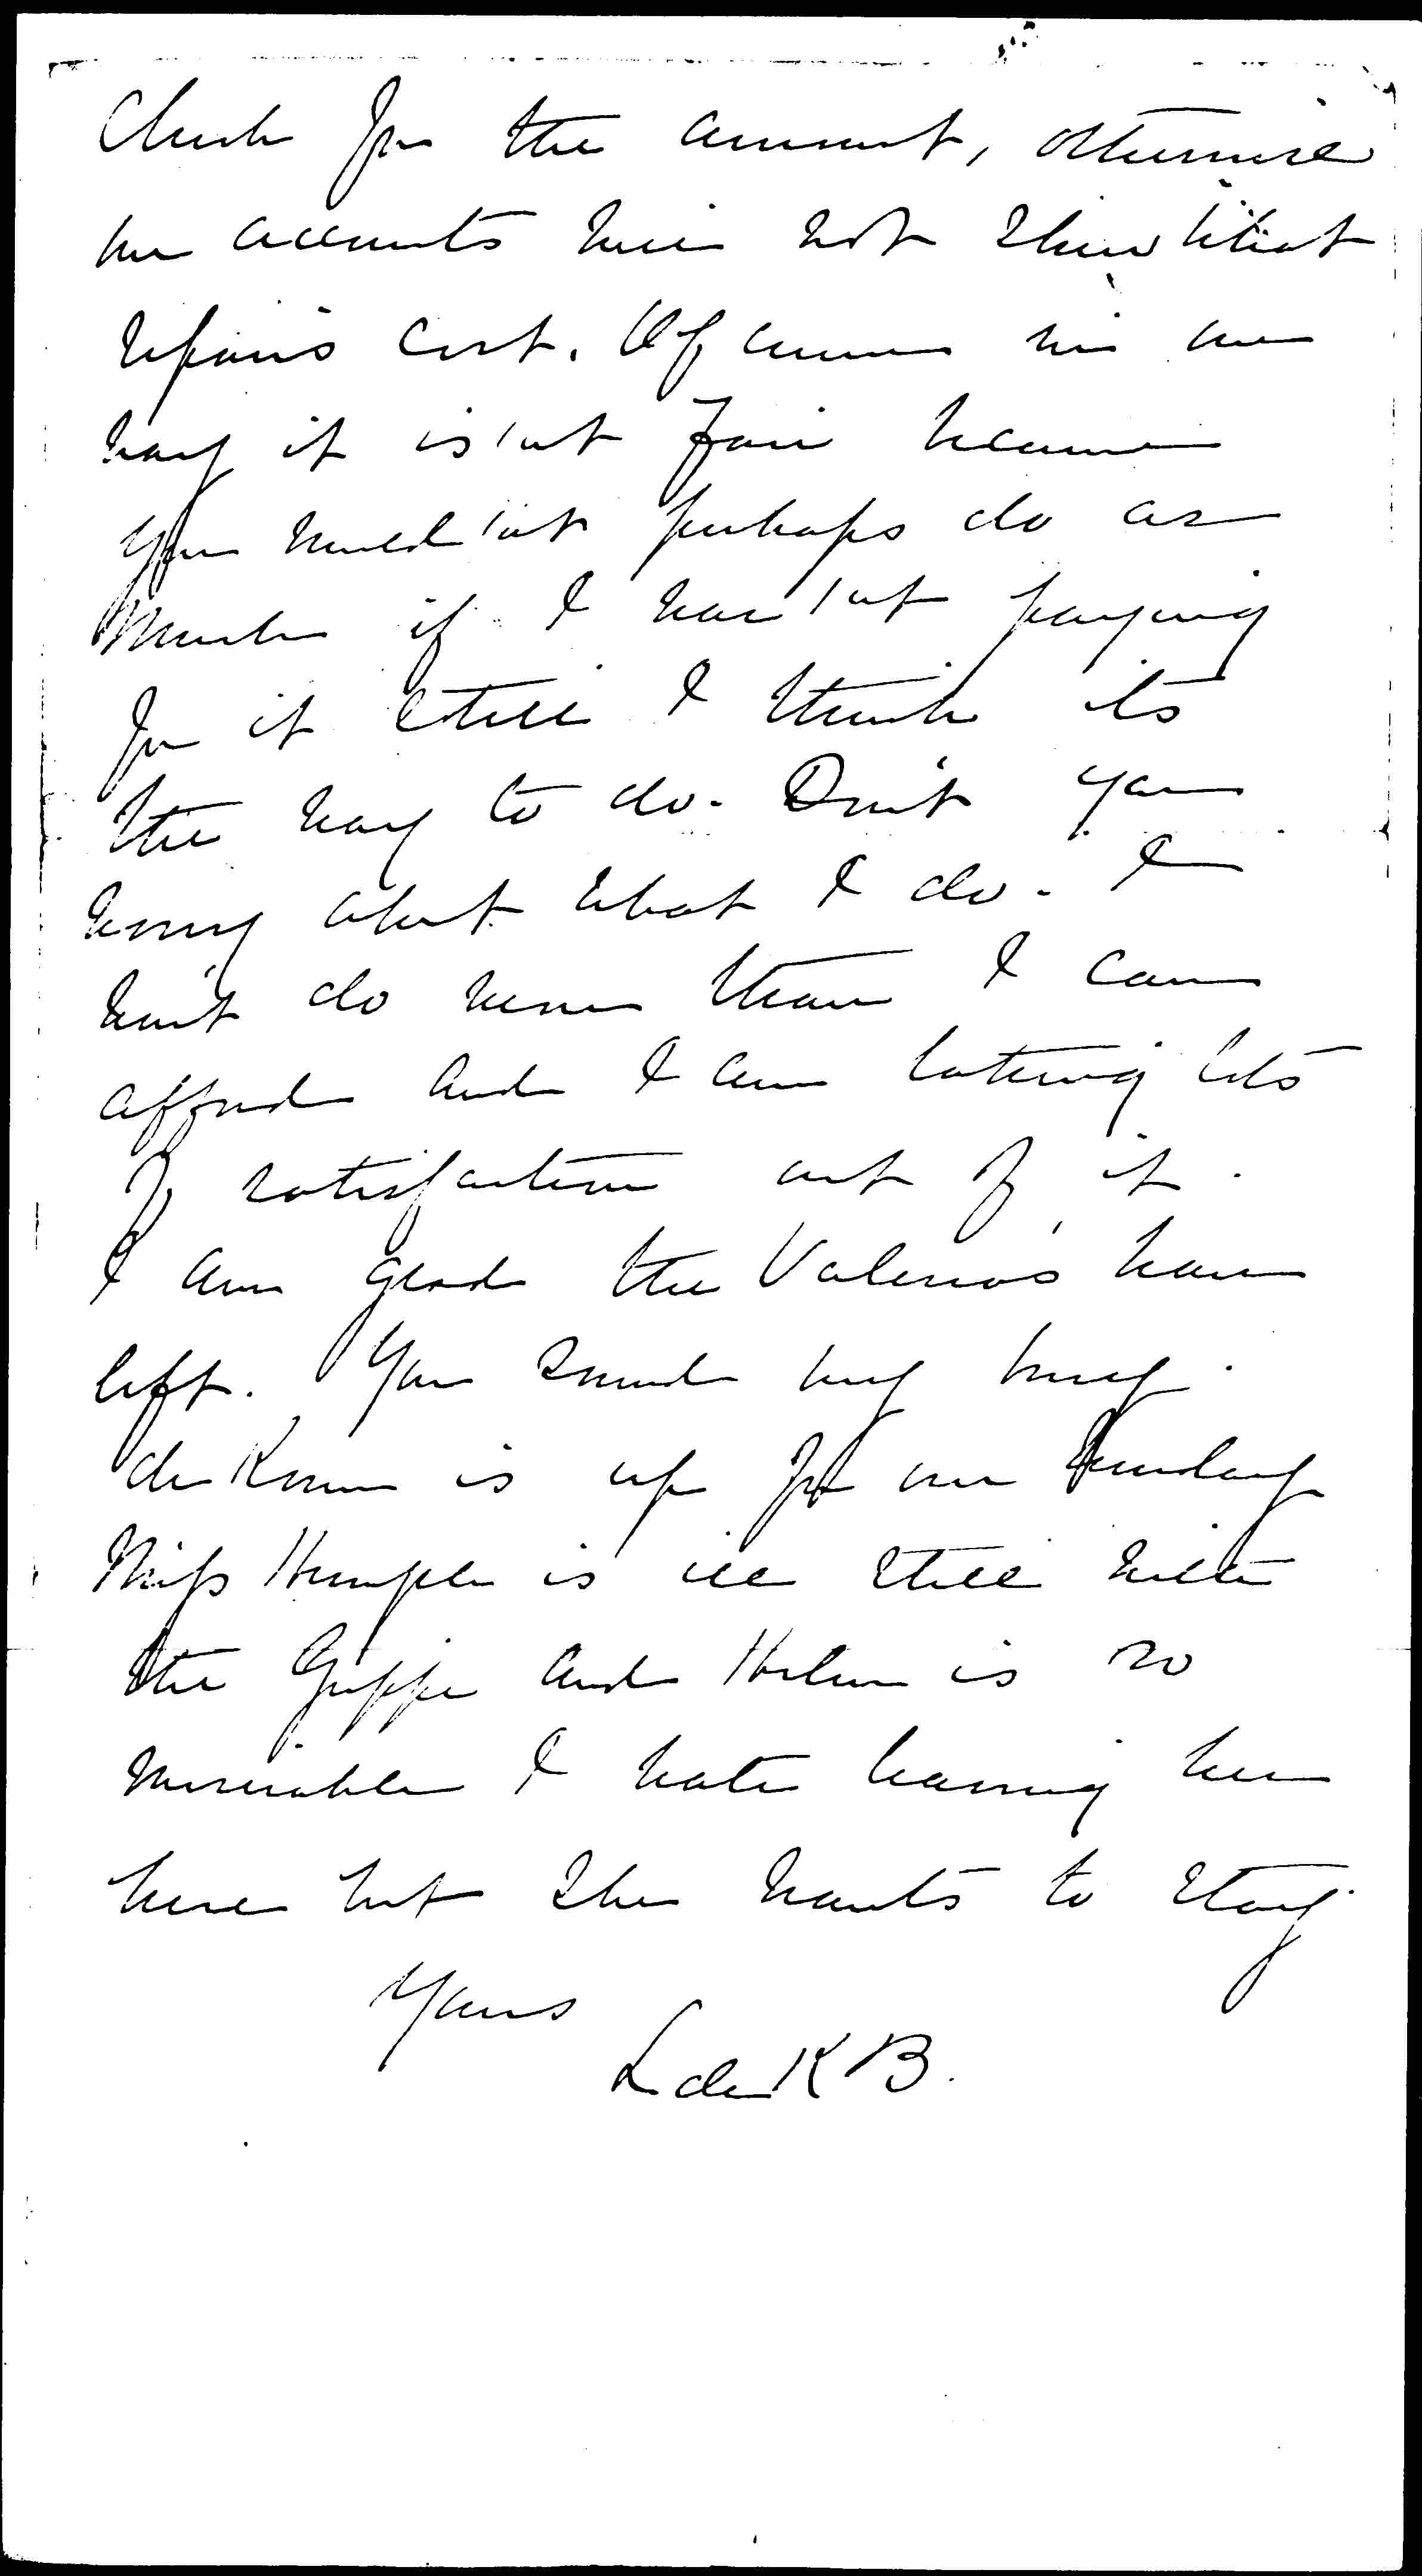 Check for the amount, otherwise
my accounts will not show what
repairs cost. Of course in one
way it is'nt fair because
you would'nt perhaps do as
much if I was'nt paying
for it still I think its
the way to do. Don't you
worry about what I do. I
won't do more than I can
afford and I am taking lots
of satisfaction out of it.
I am glad the Valerios have
left. You sound very busy.
de Koven is up for over Sunday
Miss is ill still with
the Grippe and Helen is so
miserable I hate leaving her
here but she wants to stay.
Yours
L de K B.